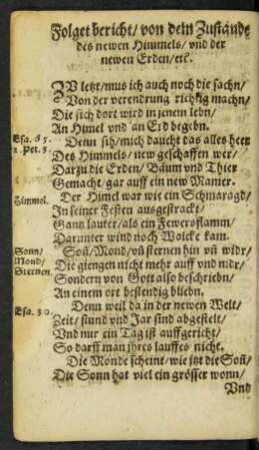 Folget bericht/ von dem Zustande
des newen Himmels/ vnd der
newen Erden/ etc.
ZV letzt/ mus ich auch noch die sachn/
Von der verendrung richtig machn/
Die sich dort wird in jenem lebn/
An Himel vnd an Erd begebn.
Esa. 65.
2. Pet. 3.
Denn sih/ mich daucht das alles heer
Des Himmels/ new geschaffen wer/
Darzu die Erden/ Bäum vnd Thier
Gemacht/ gar auff ein new Manier.
Himmel.
Der Himel war wie ein Schmaragd/
In seiner Festen ausgestrackt/
Gantz lauter/ als ein Fewersflamm/
Darunter wind noch Wolcke kam.
Sonn/
Mond/
Sternen.
Soñ/ Mond/ vñ sternen hin vñ widr/
Die giengen nicht mehr auff vnd nidr/
Sondern von Gott also beschriebn/
An einem ort bestendig bliebn.
Esa. 30.
Denn weil da in der newen Welt/
Zeit/ stund vnd Jar sind abgestelt/
Vnd nur ein Tag ist auffgericht/
So darff man jhres lauffes nicht.
Die Monde scheint/ wie jtzt die Soñ/
Die Sonn hat viel ein grösser wonn/
Vnd